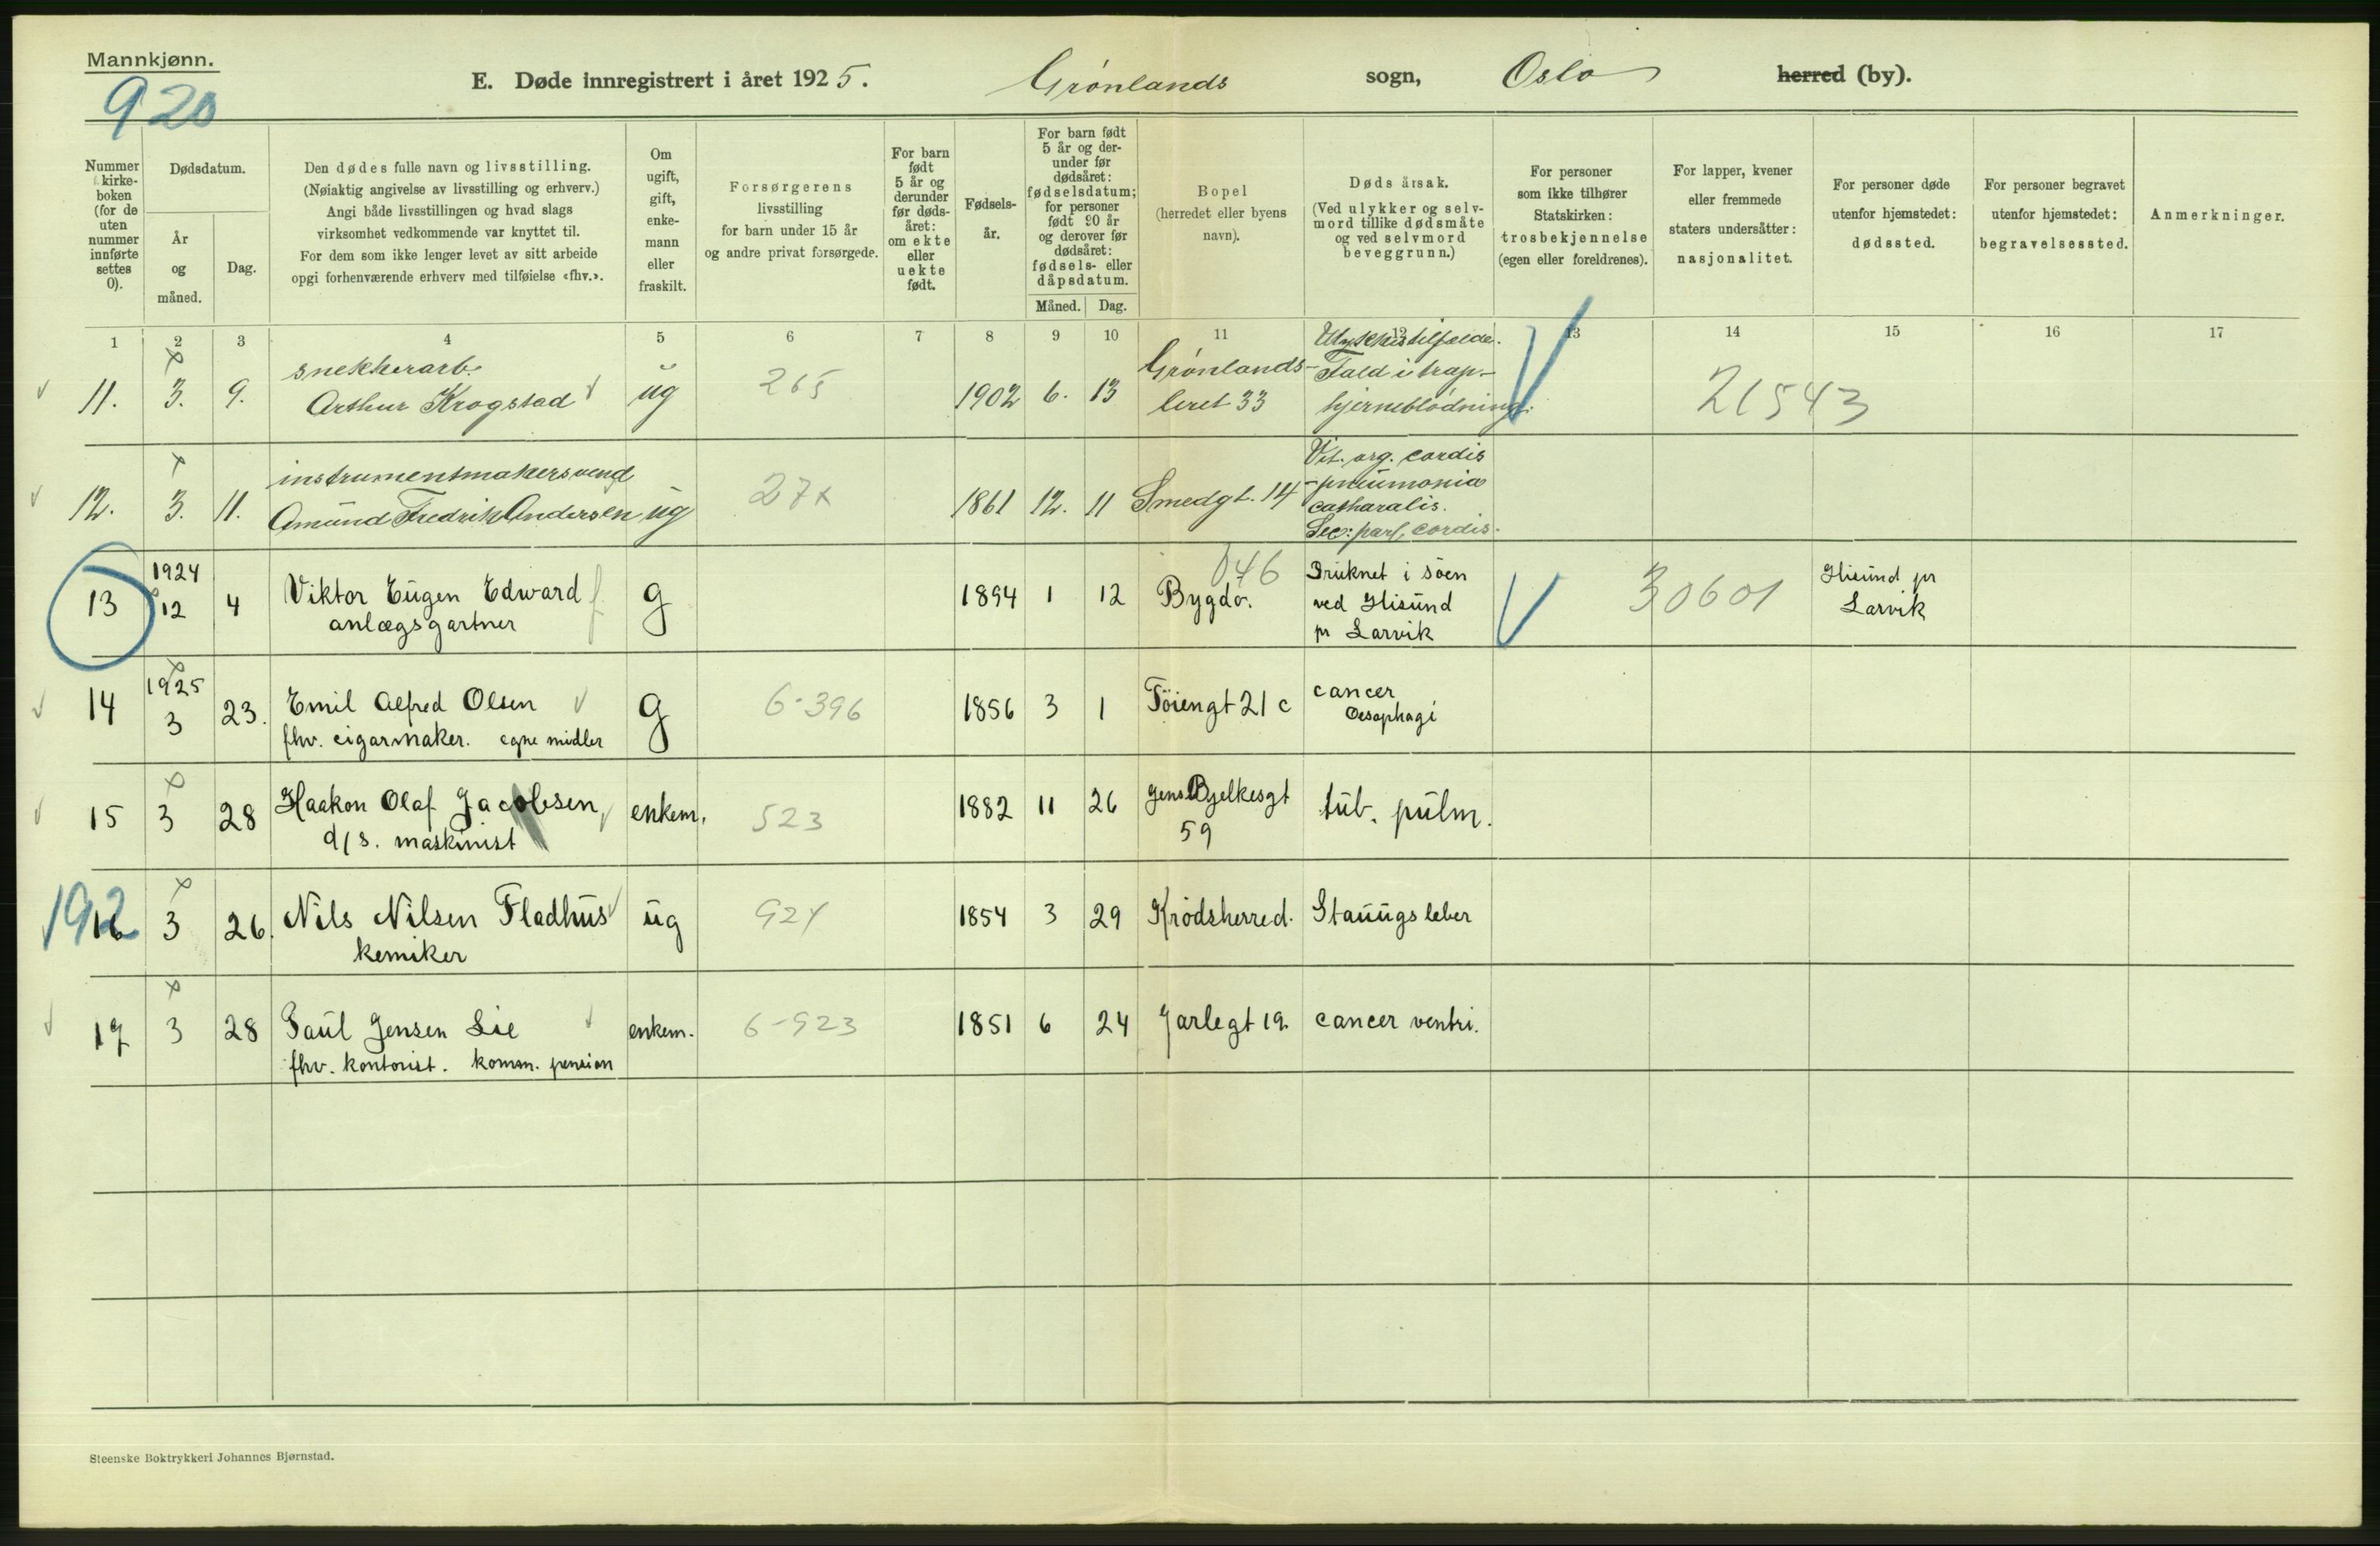 Mannkjønn.
920
E. Døde innregistrert i året 1925. Grønlands sogn, Oslo herred (by).
Nummer i kirke-boken (for de uten nummer innførte settes 0).
Dødsdatum.
År og måned.
Dag.
Den dødes fulle navn og livsstilling.
(Nøiaktig angivelse av livsstilling og erhverv.)
Angi både livsstillingen og hvad slags
virksomhet vedkommende var knyttet til.
For dem som ikke lenger levet av sitt arbeide
opgi forhenværende erhverv med tilføielse «fhv.».
Om ugift, gift, enke-mann eller fraskilt.
Forsørgerens
livsstilling
for barn under 15 år
og andre privat forsørgede.
For barn født 5 år og derunder før døds-året: om ekte eller uekte født.
Fødsels-år.
For barn født 5 år og der-under før dødsåret: fødselsdatum; for personer født 90 år og derover før dødsåret: fødsels- eller dåpsdatum.
Måned. Dag.
Bopel
(herredet eller byens navn).
Dødsårsak.
(Ved ulykker og selv-mord tillike dødsmåte og ved selvmord beveggrunn.)
For personer som ikke tilhører Statskirken: trosbekjennelse (egen eller foreldrenes).
For lapper, kvener eller fremmede staters undersåtter: nasjonalitet.
For personer døde utenfor hjemstedet: dødssted.
For personer begravet utenfor hjemstedet: begravelsessted.
Anmerkninger.
1 2 3 4 5 6 7 8 9 10 11 12 13 14 15 16 17
snekkerarb. Ulykkestilfælde.
11. 3. 9. Arthur Krogstad ug 265 1902 6. 13 Grønlands-leret 33 Fald i trap.- hjerneblødning. 21543
instrumentmakersvend
12. 3. 11. Amund Fredrik Andersen ug 27x 1861 12. 11 Smedgt. 14 Vit. org. cordis - pneumonia catharalis. Sec: parl. cordis.
13 1924 12 4 Viktor Eugen Edward g 1894 1 12 Bygdø. 046 Druknet i søen ved Hisund pr Larvik 30601 Hisund pr Larvik
anlægsgartner
14 1925 3 23. Emil Alfred Olsen g 6-396 1856 3 1 Tøiengt 21 c cancer Oesophagi
fhv. cigarmaker. egne midler
15 3 28 Haakon Olaf Jacobsen enkem. 523 1882 11 26 Jens Bjelkesgt 59 tub. pulm.
d/s. maskinist
192
16 3 26. Nils Nilsen Fladhus ug 924 1854 3 29 Krødsherred. Stauungsleber
kemiker
17 3 28 Paul Jensen Lie enkem. 6-923 1851 6 24 Jarlegt 19. cancer ventri.
fhv. kontorist. komm. pension
Steenske Boktrykkeri Johannes Bjørnstad.